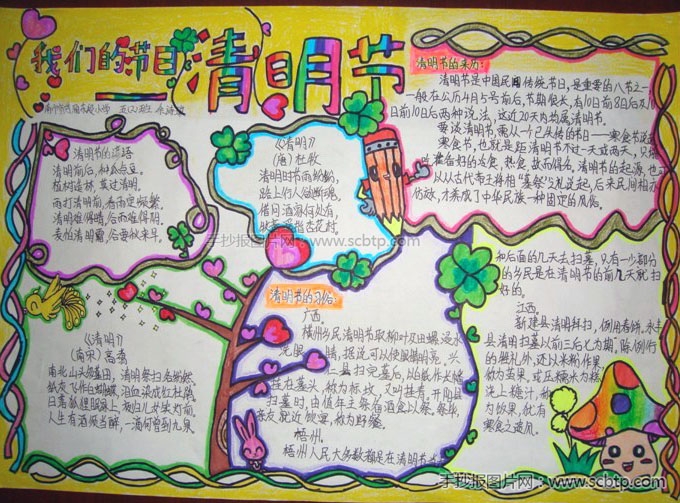 我们的节日
清明节
清明节的来历:
清明节是中国民间传统节日,是重要的八节之一
一般在公历4月5号前后,节期很长,有10日前8日后及10
日前10日后两种说法,这近20天内均属清明节。
要谈清明节,需从一个已失传的节日——寒食节
寒食节,也就是距清明节不过一天或两天,
准备好的冷食,热食,故而得名。清明节的起源,
从以古代帝王将相“墓祭”之礼
仿效,才来成了中华民族一种固定的风俗。
清明节的谚语
清明前后,种瓜点豆。
植树造林,莫过清明。
雨打清明前,春雨定频繁。
清明难得晴,谷雨难得阴。
麦怕清明霜,谷要秋来旱。
《清明》
(唐)杜牧
清明时节雨纷纷,
路上行人欲断魂,
借问酒家何处有,
牧童遥指杏花村。
手抄报图片网:www.scbtp.com
《清明》
(南宋)高翥
南北山头多墓田,清明祭扫各纷然,
纸灰飞作白蝴蝶,泪血染成红杜鹃,
日落狐狸眠冢上,夜归儿女笑灯前,
人生有酒须当醉,一滴何曾到九泉
清明节的习俗:
广西。
横州乡民清明节取柳叶及田螺浸水
洗眼睛,据说可以使眼睛明亮,兴
县扫完墓后,以白纸作长幡
挂在墓头,称为标坟,又叫挂青,平南县
扫墓时,由值年主祭备酒食以祭,祭毕,
亲友就近饮宴,称为野宴。
梧州。
梧州人民大多数都是在清明节
和后面的几天去扫墓,只有一部分
的乡民是在清明节的前几天就扫
好的。
江西。
新建县清明拜扫,例用春饼,永丰
县清明扫墓以前三后七为期,除例行
的祭礼外,还以米粉作果,称
为茧果,或压糯米为糕,
浇上糖汁,称
为饧果,犹有
寒食之遗风。
手抄报图片网:www.scbtp.com